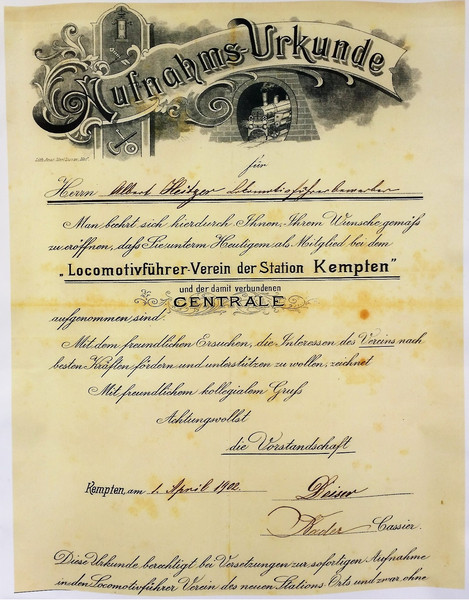 Aufnahms-Urkunde
für
Herrn Albert Heitzer Locomotivführerbewerber
Man beehrt sich hierdurch Ihnen, Ihrem Wunsche gemäss
zu eröffnen, daß Sie unterm Heutigem als Mitglied bei dem
„Locomotivführer-Verein der Station Kempten"
und der damit verbundenen
CENTRALE
aufgenommen sind.
Mit dem freundlichen Ersuchen, die Interessen des Vereins nach
besten Kräften fördern und unterstützen zu wollen, zeichnet
Mit freundlichem kollegialem Gruß
Achtungsvollst
die Vorstandschaft
Kempten, am 1. April 1902. Deiser
Cassier.
Diese Urkunde berechtigt bei Versetzungen zur sofortigen Aufnahme
in den Locomotivführer Verein des neuen Stations Orts und zwar ohne